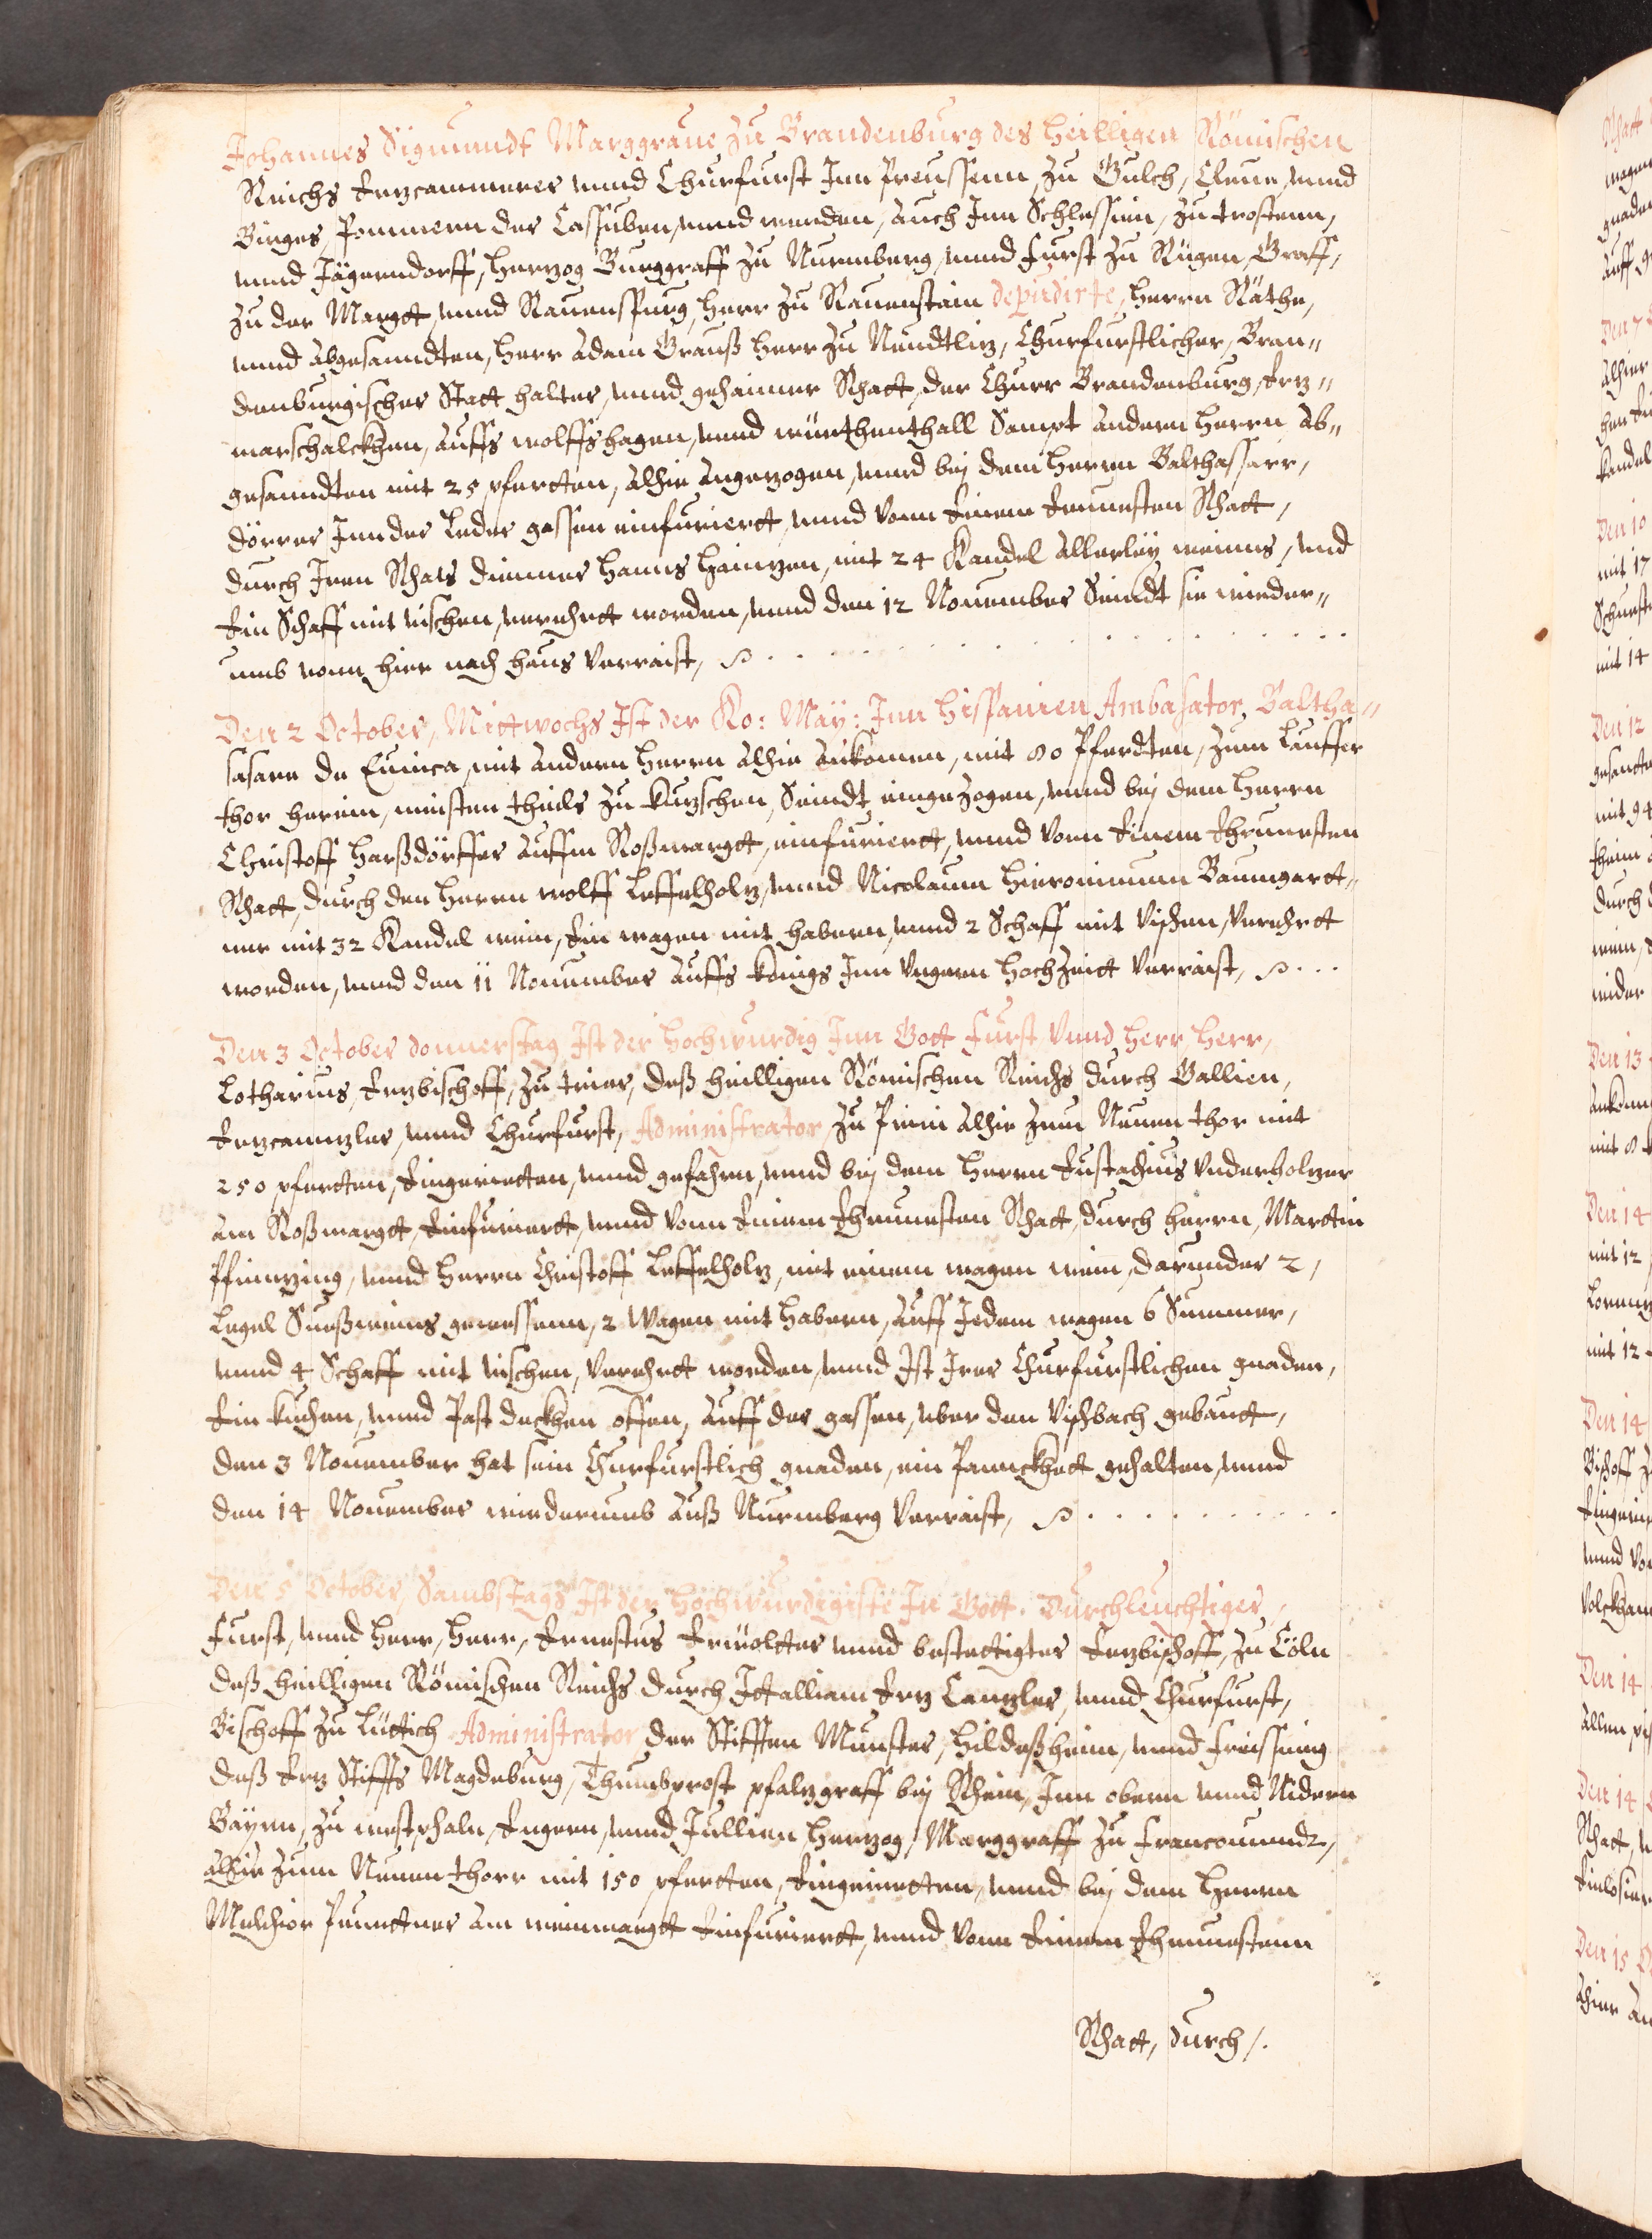 Johannes Sigmundt Marggraue zu Brandenburg des heilligen Römischen
Reichs Erzcammerer vnnd Churfurst Inn Preussenn, zu Gulch, Cleue, vnnd
Berges, Pommern der Cassuben, vnnd wenden, auch Inn Schlessien, zu trossenn,
vnnd Jägerndorff, herzog Burggraff zu Nurmberg, vnnd Furst zu Rügen, Graff,
zu der Margtt, vnnd Rauenspurg, herr zu Rauenstain depudirte, herrn Räthe,
vnnd abgesanndten, herr Adam Ganß herr zu Puttlitz, Churfurstlicher, Bran„
denburgischer Statt halter, vnnd gehaimer Rhatt, der Churr Brandenburg, Erz„
marschalckhen, auffs wolffshagen, vnnd Sampt andern herrn Ab„
gesanndten mit 25 pfertten, alhie angezogen, vnnd bej dem herrn Balthassarr,
Dörrer Inn der Leder gassen einfuriertt, vnnd vonn Einem Ernuesten Rhatt,
durch Iren Rhats diener Hanns Hainzen, mit 24 Kandel allerley weinns, vnd
Ein Schaff mit vischen, verehrtt worden, vnnd den 12 Nouember Seindt sie wieder„
umb vonn hier nach haus verraist,
Den 2 October, Mittwochs Ist der Ko: May: Inn Hispanien Ambasator, Baltha„
sasare de Euinca, mit andern herrn alhie ankomen, mit 80 Pferdten, zum Lauffer
thor herein, meisten theils zu kutzschen, Seindt eingezogen, vnnd bej dem herrn
Christoff Harßdörffer auffm Roßmargtt, einfuriertt, vnnd vonn Einem Ehrnuesten
Rhatt, durch den herrn wolff Leffelholz, vnnd Nicolaum Hieronimum Baumgartt„
ner mit 32 Kandel wein, Ein wagen mit habern, vnnd 2 Schaff mit vischen, verehrtt
worden, vnnd den 11 Nouember auffs königs Inn Vngern hochzeitt verraist, . . .
Den 3 October donnerstag Ist der hochwurdig Inn Gott Furst vnnd herr, herr,
Lotharius, Erzbischoff, zu trier, deß heilligen Römischen Reichs durch Gallien,
Erzcannzler, vnnd Churfurst, Administrator, zu Prim alhie zum Neuen thor mit
250 pfertten, Eingerietten, vnnd gefahren, vnnd bej dem herrn Eustachius Vnderholzer
am Roßmargtt, Einfuriertt, vnnd vonn Einem Ehrnuesten Rhatt, durch herrn, Marttin
Pfinnzing, vnnd herrn Christoff Leffelholz, mit einem wagen wein, darunder 2,
Legel Sueßweins gewessenn, 2 Wagen mit habern, auff Jedem wagen 6 Summer,
vnnd 4 Schaff mit vischen, verehrtt worden, vnnd Ist Irer Churfurstlichen gnaden,
Ein kuchen, vnnd Past deckhen offen, auff der gassen, vber den vischbach gebautt,
den 3 Nouember hat sein Churfurstlich gnaden, ein Pannckhett gehalten, vnnd
den 14 Nouember wiederumb auß Nurmberg verraist,
Den 5 October, Sambstags Ist der Hochwürdigiste In Gott. Durchleuchtiger,
Furst, vnnd herr, herr, Ernestus Erwölter vnnd bestettigter Erzbischoff, zu Cöln
deß heilligen Römischen Reichs durch Ittalliam Erz Canzler, vnnd Churfurst,
Bischoff zu Lüttich Administrator der Stifften Munster, Hildeßheim, vnnd Freissing
deß Erz Stiffts Magdeburg, Thumbprost pfalzgraff bej Rhein, Inn obern vnnd Nidern
Bayrn, zu westphaln, Engern, vnnd Jullien herzog, Marggraff zu Francomundt,
alhie zum Neuen thorr mit 150 pfertten, Eingerietten, vnnd bej dem herrn
Melchior am weinmargtt Einfuriertt, vnnd vonn Einem Ehrnuestenn
Rhatt, durch /.